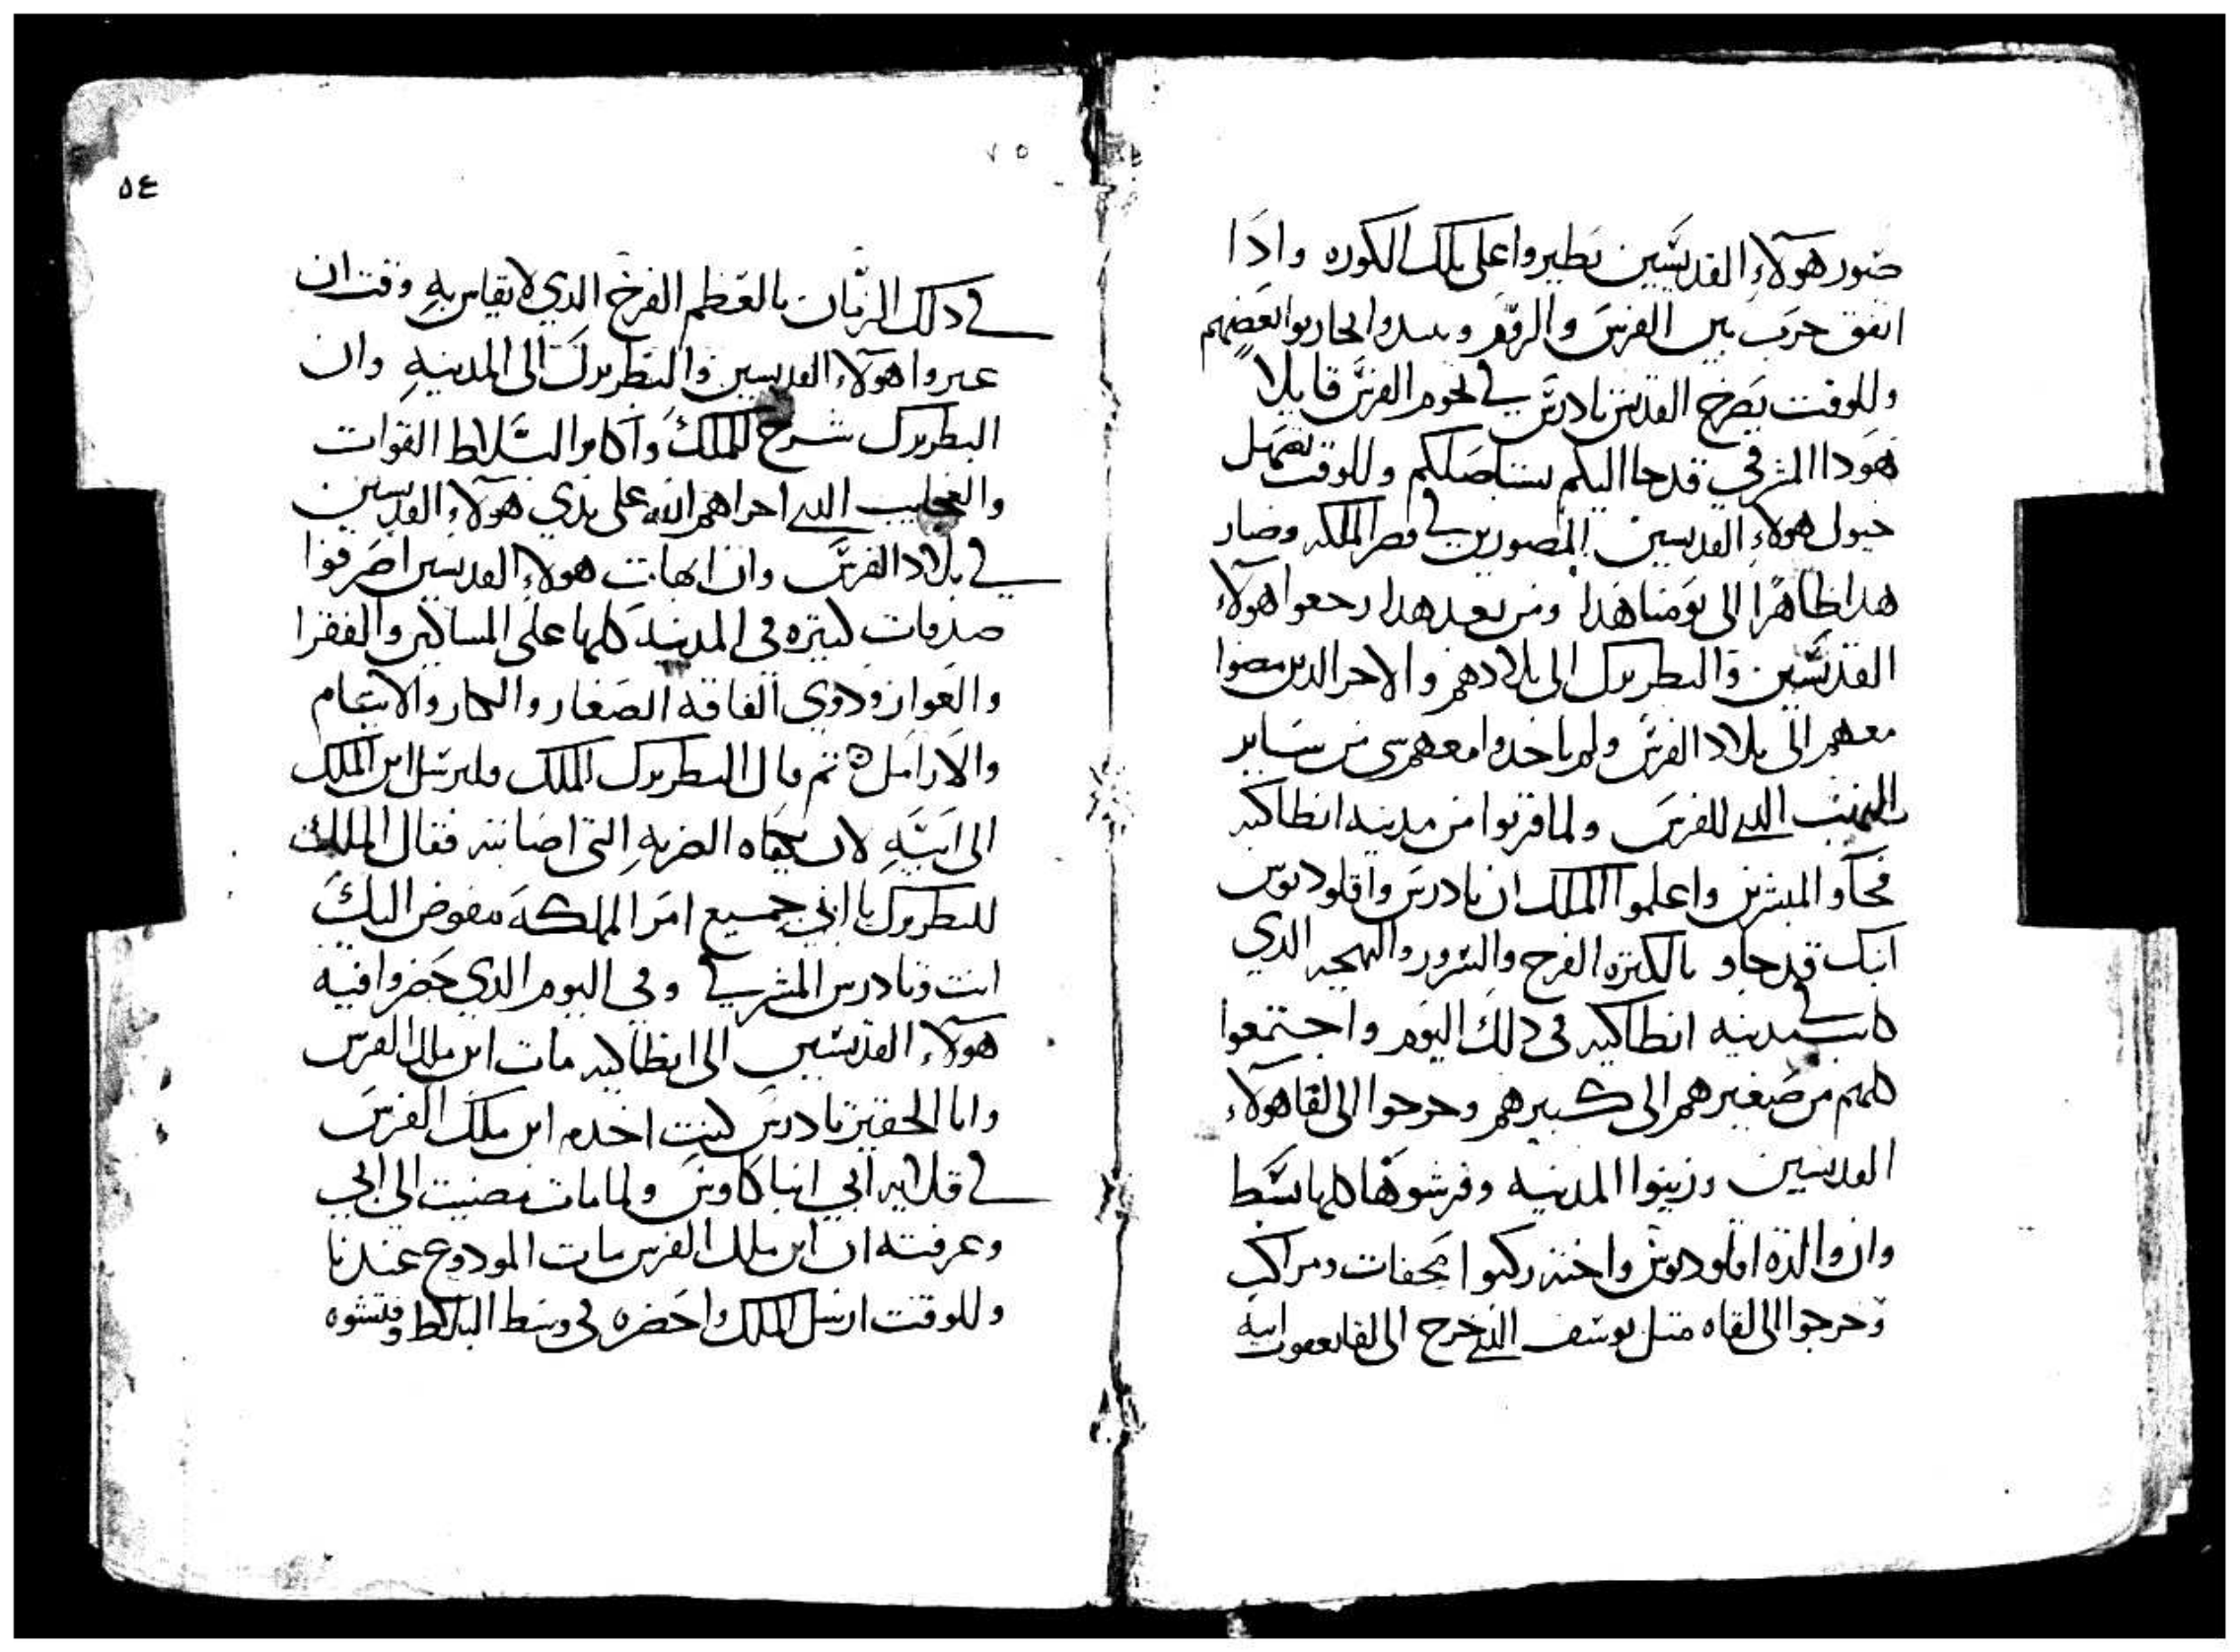 صور هولاء القديسين بطيروا على تلك الكوره واذا
اتفق حرب بين الفرس والروم و يحاربوا بعضهم
وللوقت يصرخ القديس تادرس في تخوم الفرس قايلا
هودا المشرقي قد جا اليكم يستاصلكم وللوقت تصهل
خيول هولاء القديسين المصورين في قصر المملكه وصار
هدا ظاهرا الى يومنا هدا ومن بعد هدا رجعوا هولاء
القديسين والبطريرك الى بلادهم والاخر الدين مضوا
معهم الى بلاد الفرس ولم ياخدوا معهم شي من ساير
النهب الدي للفرس ولما قربوا من مدينه انطاكيه
فجاو المبشرين واعلموا الملك ان تادرس واقلوديوس
ابنك قد جاو يا لكثرة الفرح والسرور والبهجه الدي
كانت في مدينه انطاكيه في دلك اليوم واجتمعوا
كلهم من صغيرهم الى كبيرهم وخرجوا الى لقا هولاء
القديسين وزينوا المدينه وفرشوها كلها بسط
وان والدة اقلوديوس واخته ركبوا محفات ومراكب
وخرجوا الى لقاه متل يوسف الدي خرج الى لقا يعقوب ابيه
٥٤
في دلك الزمان يا لعظم الفرح الدي لا يقاس به وقت ان
عبروا هولاء القديسين والبطريرك الى المدينه وان
البطريرك شرح للملك واكابر البلاط القوات
والعجايب الدي اجراهم الله على يدي هولاء القديسين
في بلاد الفرس وان ابهات هولاء القديسين اصرفوا
صدقات كتيره في المدينه كلها على المساكين والفقرا
والعواز ودوي الفاقه الصغار والكبار والايتام
والارامل ثم قال البطريرك للملك فليرسل ابن الملك
الى ابيه لان كفاه الضربه التي اصابته فقال الملك
للبطريرك يا ابي جميع امر المملكه مفوض اليك
انت وتادرس المشرقي وفي اليوم الدي حضروا فيه
هولاء القديسين الى انطاكيه مات ابن ملك الفرس
وانا الحقير تادرس كنت اخدم ابن ملك الفرس
في قلايه ابي انبا كاوس ولما مات مضيت الى ابي
وعرفته ان ابن ملك الفرس مات المودوع عندنا
وللوقت ارسل الملك واحضره في وسط البلاط وفتشوه